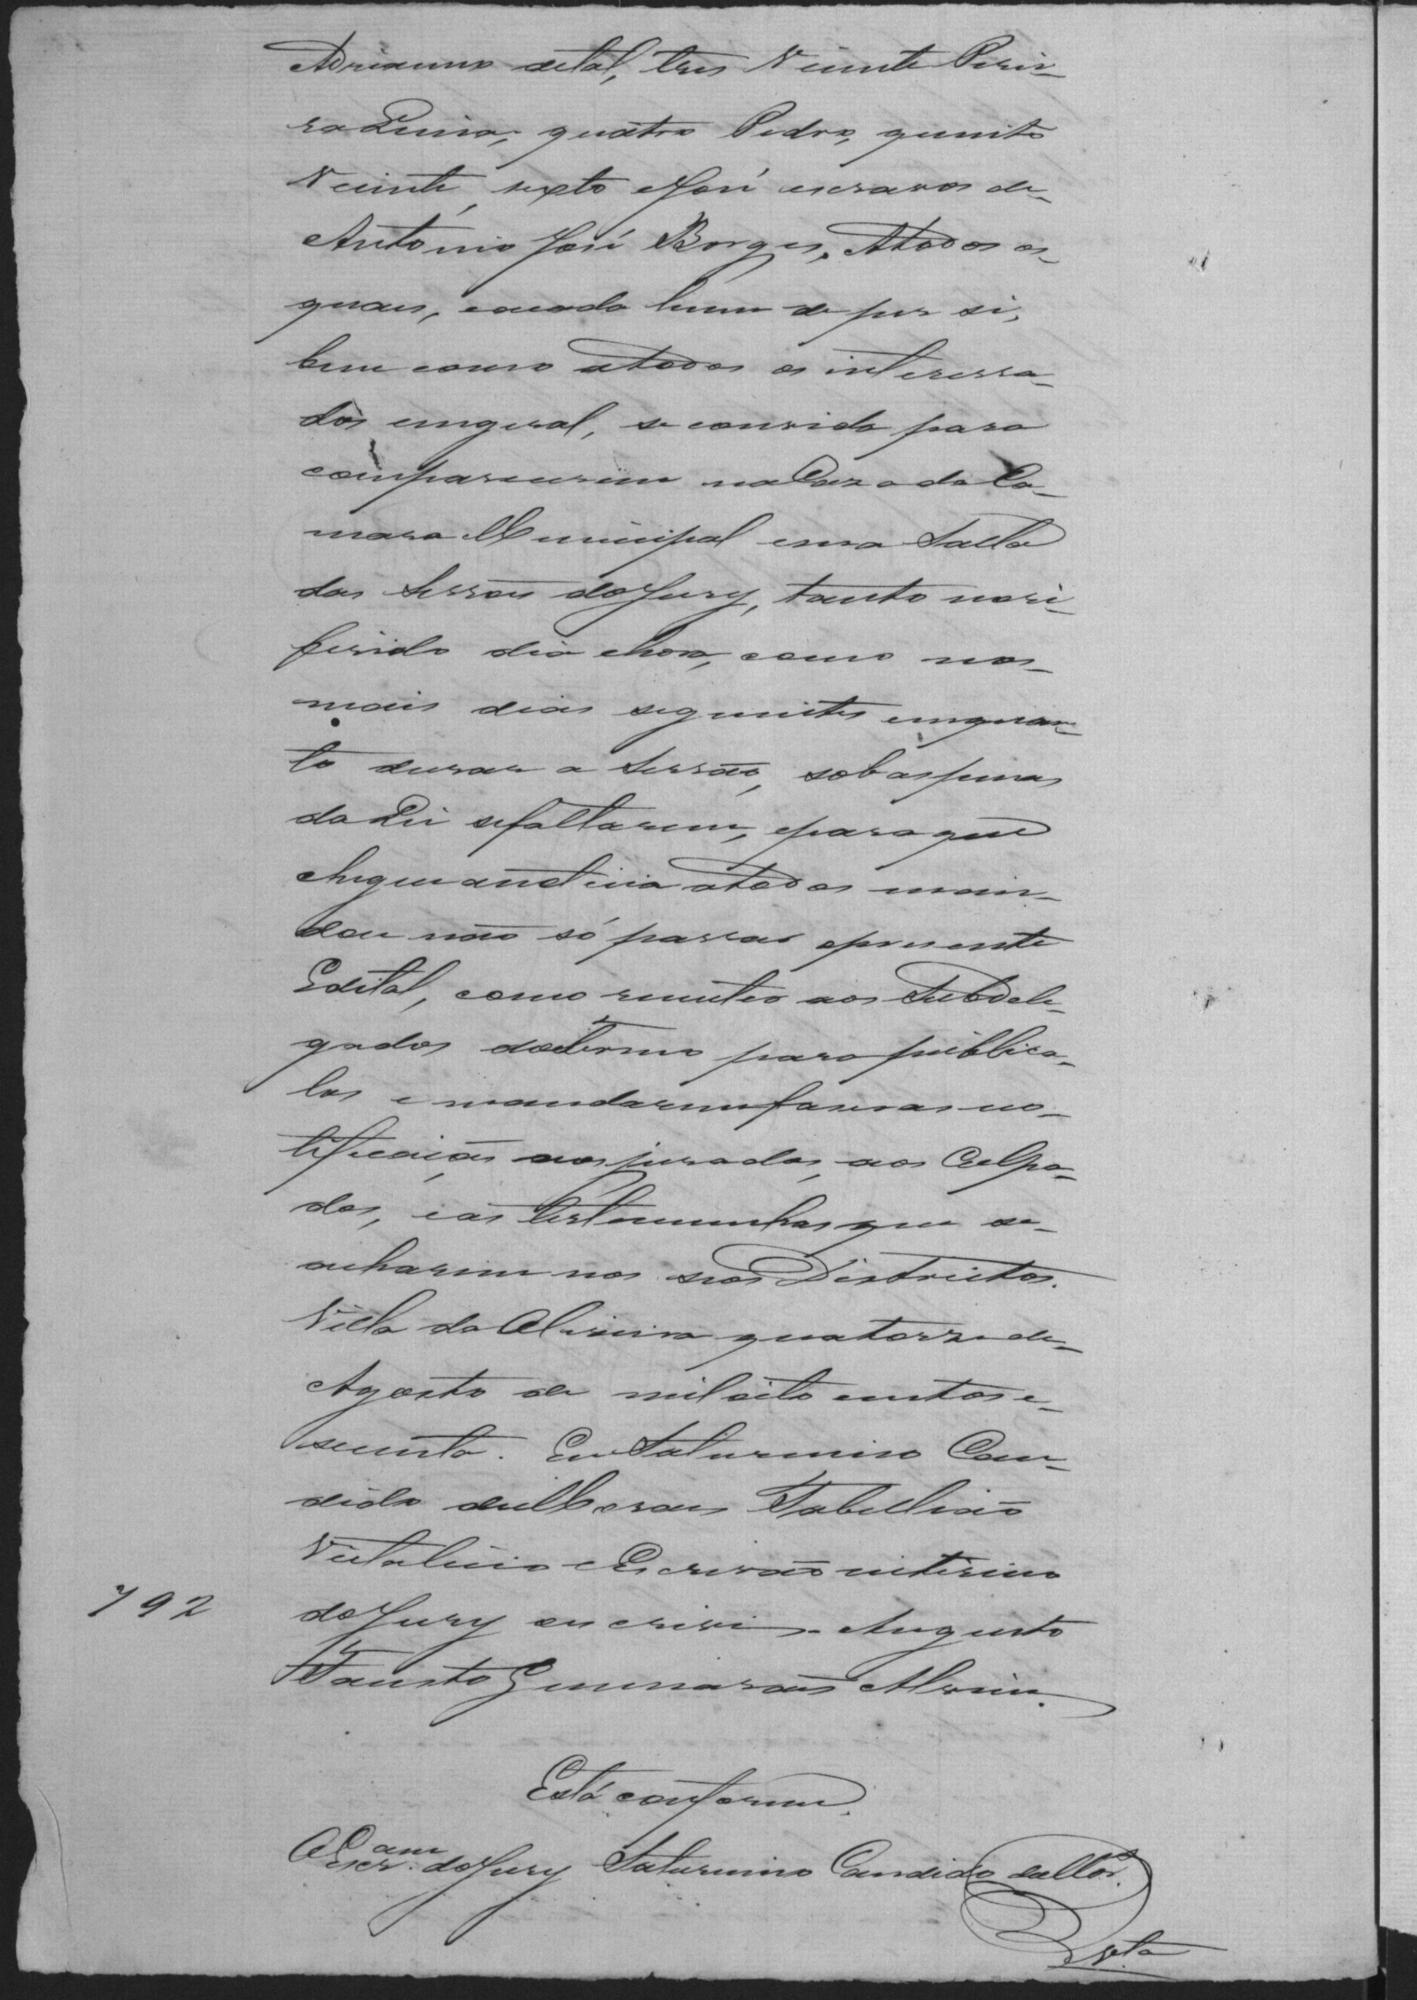 Adrianno de tal, tres Vicente Perei-
ra Lima, quatro Pedro, quinto
Vicente, sexto José escravos de
Antonio José Borges. A todos os
quaes, e a cada hum de per si,
bem como a todos os interessa-
dos em geral, se convida para
comparecerem na Caza da Ca-
mara Municipal em a Salla
das Sessoes do Jury, tanto no re-
ferido dia e hora, como nos
mais dias seguintes emquan-
to durar a Sessão, sob as penas
da Lei se faltarem, e para que
chegue a noticia a todos man-
dou não só passar o presente
Edital, como remetter aos Subdele-
gados do termo para publica-
los e mandarem fazer as no-
tificações aos jurados, aos Culpa-
dos, e as testemunhas que se
acharem nos seos Districtos.
Villa da quatorze de
Agosto de mil oito centos e
secenta. Eu Saturnino Can-
dido de Moraes Tabellião
Vitalicio e Escrivão interino
792
do Jury escrevi. Augusto
Fausto Guimarães Alvim.
Está conforme.
O Escr.am do Jury Saturnino Candido de Mor.